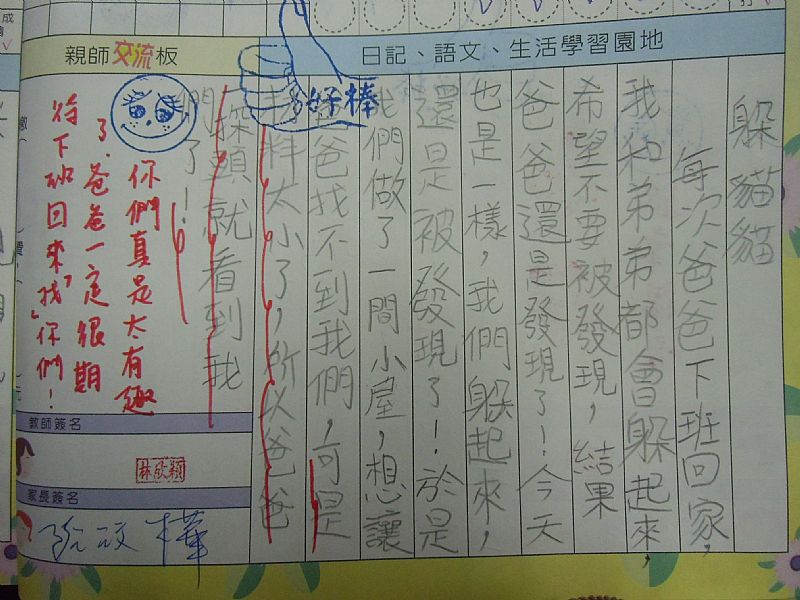 親師交流板
日記、語文、生活學習園地
好棒
躲貓貓
每次爸爸下班回家,
我和弟弟都會躲起來,
希望不要被發現,結果
爸爸還是發現了!今天
也是一樣,我們躲起來,
還是被發現了!於是
我們做了一間小屋,想讓
爸爸找不到我們,可是
太小了,所以爸爸
探頭就看到我
們了!
你們真是太有趣
了,爸爸一定很期
待下班回來"找"你們!
教師簽名
林欣穎
家長簽名